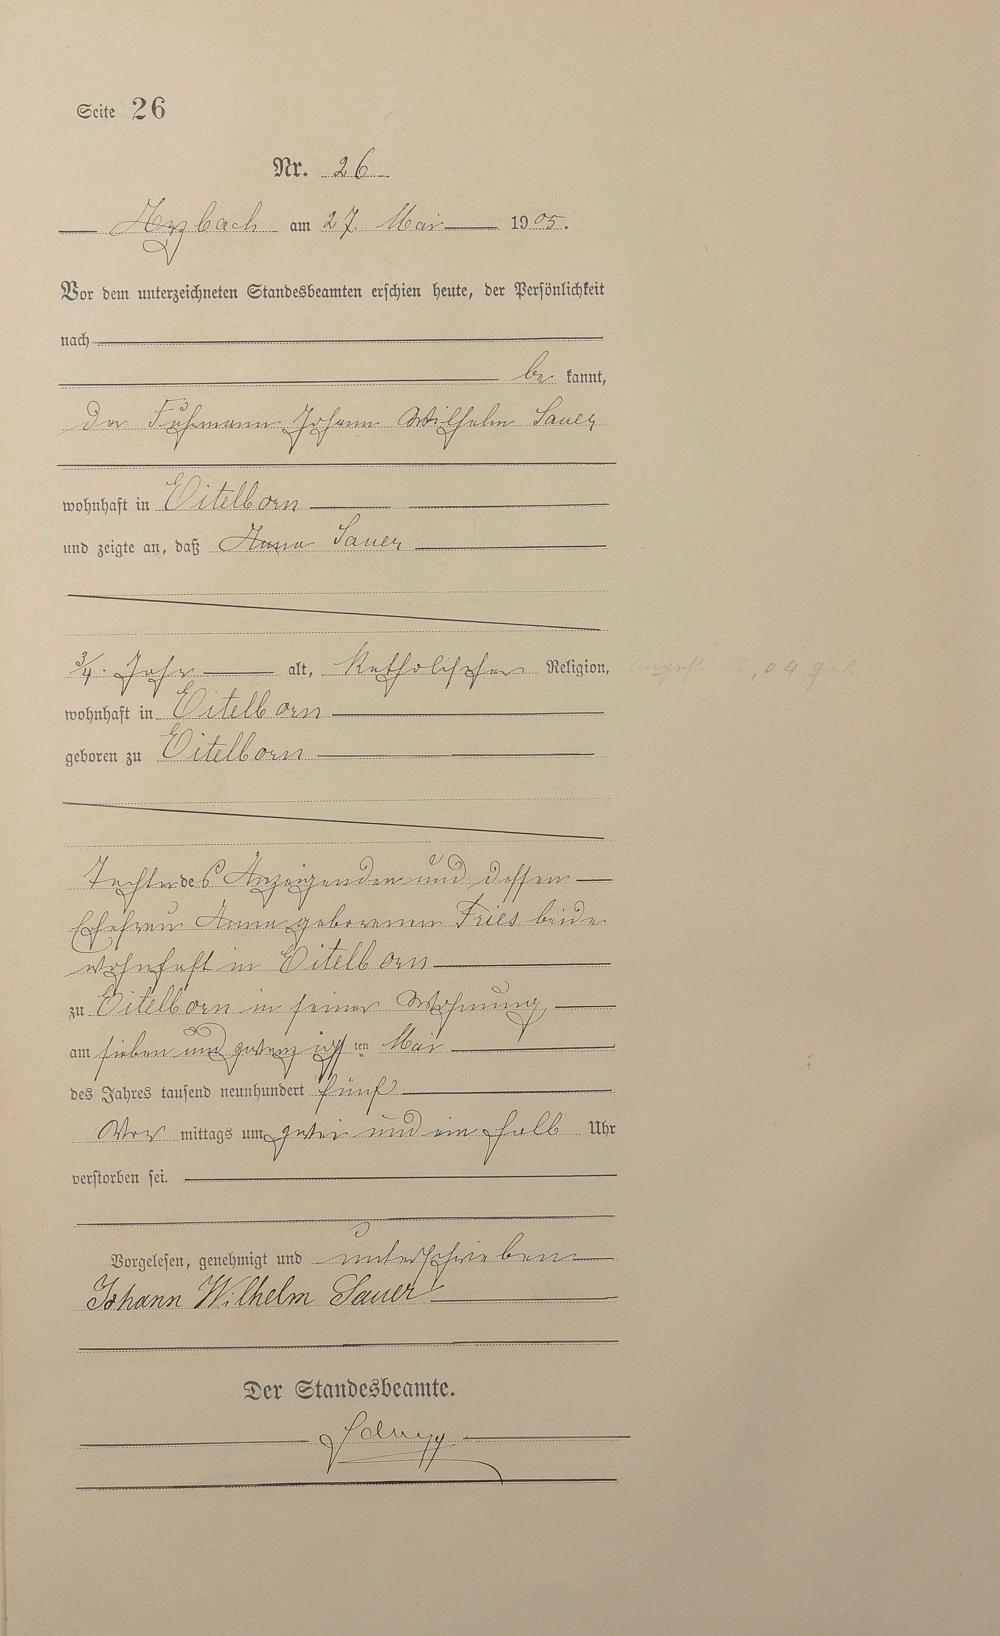 Seite 26
Nr. 26
Arzbach am 27. Mai 1905.
Vor dem unterzeichneten Standesbeamten erschien heute, der Persönlichkeit
nach
be kannt,
der Fuhrmann Johann Wilhelm Sauer
wohnhaft in Eitelborn
und zeigte an, daß Anna Sauer
3/4 Jahr alt, katholischer Religion,
wohnhaft in Eitelborn
geboren zu Eitelborn
Tochter des Anzeigenden und dessen
Ehefrau Anna geborenen Fries beide
wohnhaft in Eitelborn
zu Eitelborn in seiner Wohnung
am sieben und zwanzigsten Mai
des Jahres tausend neunhundert fünf
Vor mittags um zwei und ein halb Uhr
verstorben sei.
Vorgelesen, genehmigt und unterschrieben
Johann Wilhelm Sauer
Der Standesbeamte.